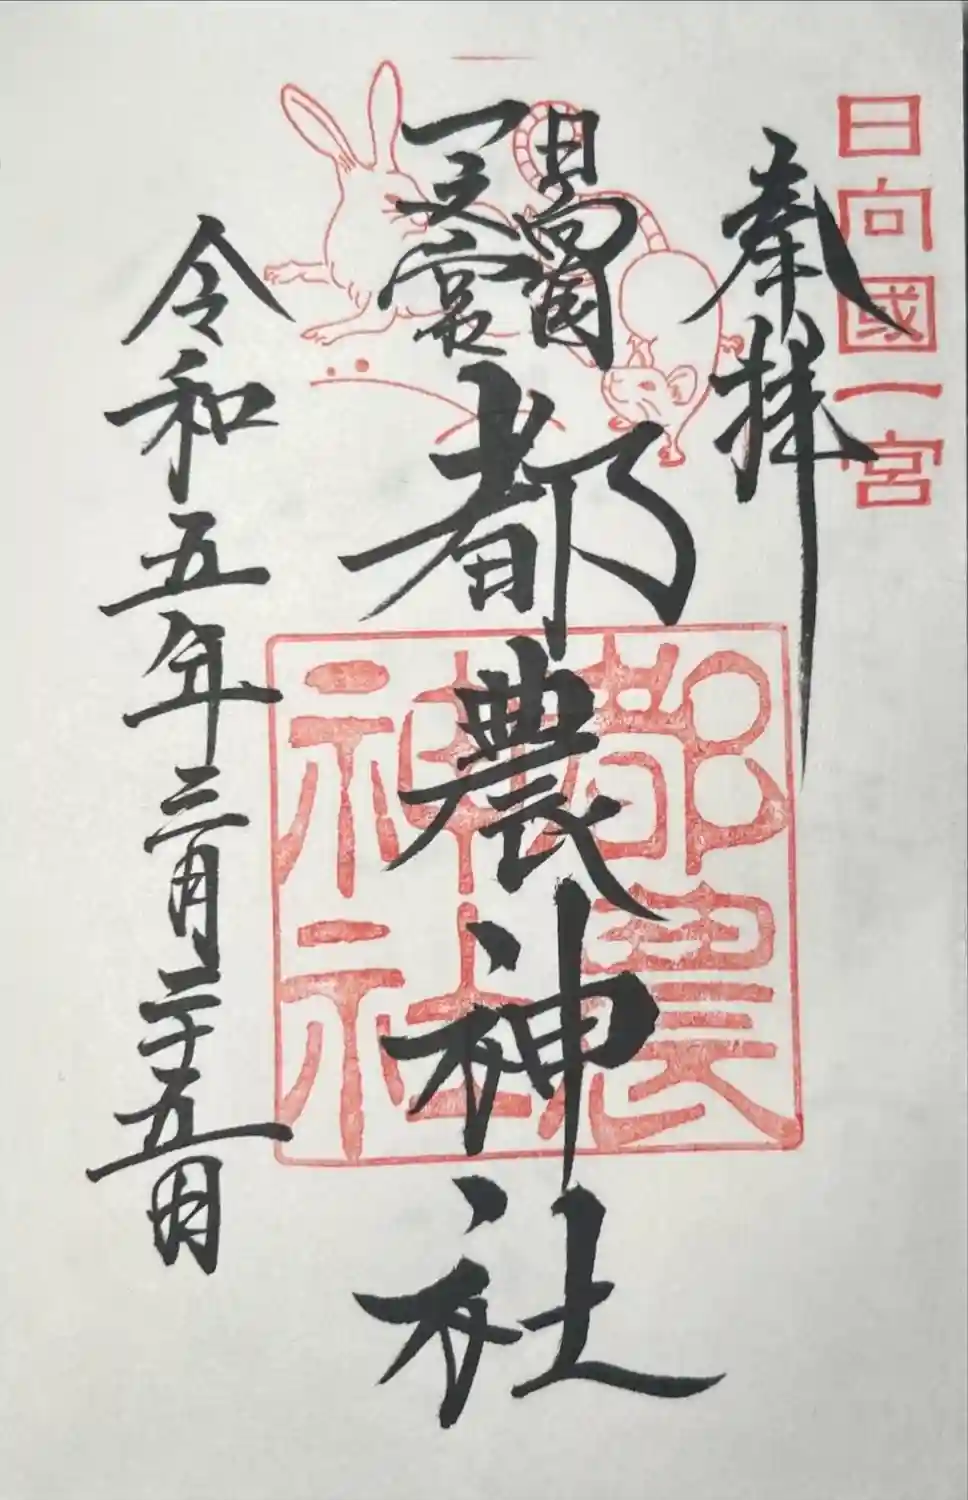 日向國一宮
奉拝
日向國
一之宮
都農神社
都農神社
令和五年三月二十五日